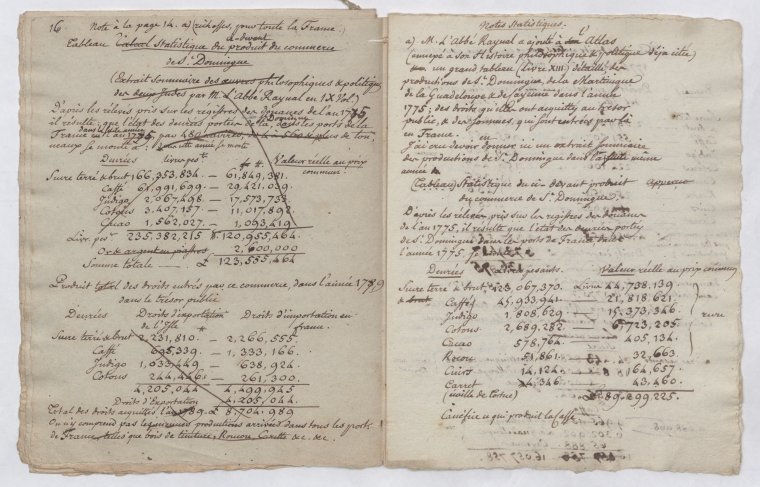 16. Note à la page 14. a) richesses, pour toute la France.)
a-devant
Tableau Statistique du produit du commerce
de St. Domingue
(Extrait Sommaire des œuvres philosophiques & politiques
des deux Indes par M. L'Abbé Raynal en IX Vol.)
D'après les relevés pris sur les registres des douanes de l'an 1775
il résulte, que l'état des denrées portées de St. Domingue dans les ports de la
France en l'an 1775, par 480 navires, de & 560 & plus de ton,
neaux se monte à:
Denrées livres pst. Valeur réelle au prix
commun.
Sucre terré & brut 166,953,834. — 61,849,381.
Caffé 61,991,699. — 29,421,039.
Indigo 2,067,498. — 17,573,733.
Cotons 3,407,157. — 11,017,892.
Cacao 1,562,027. — 1,093,419
Livr. pes. 235,382,215 120,955,464
Or & argent en piastres 2,600,000
Somme totale — £ 123,555,464
Produit total des droits entrés par ce commerce, dans l'année 1789
dans le trésor public
Denrées Droits d'exportation Droits d'importation en
de l'Isle france.
Sucre terré & brut 2,231,810. — 2,266,555.
Caffé 695,339. — 1,333,166.
Indigo 1,033,449 — 638,924.
Cotons 244,446 — 261,300.
4,205,044 4,499,945
Droits d'Exportation 4,205,044
Total des droits acquittés l'an 1789. £ 8,704,989
On n'y comprend pas les menues productions arrivées dans tous les ports
de France, telles que bois de teinture, Roucou, Carette &c. &c.
Notes Statistiques.
a) M. L'Abbé Raynal a ajouté à son Atlas
(annexé à son Histoire philosophique & politique déja citée)
un grand tableau (Livre XIII) détaillé des
productions de St. Domingue, de la Martinique
de la Guadeloupe & de Cayenne dans l'année
1775; des droits qu'elles ont acquittés au trésor
public, & des sommes, qui sont entrées par là
en France.
J'ai cru devoir donner ici un extrait sommaire
des productions de St. Domingue dans la même
année
(Tableau) Statistique du ci-devant produit
du commerce de St. Domingue.
D'après les relevés pris sur les registres des douanes
de l'an 1775, il résulte que l'état des denrées portées
de St. Domingue dans les ports de France
l'année 1775.
Denrées Livres pesants. Valeur réelle au prix commun
Sucre terré & brut 123,067,370. Livres 44,738,139
Caffé 45,933,941 — 21,818,621.
Indigo 1,808,629 — 15,373,346
Cotons 2,689,282 — 6,723,205.
Cacao 578,764 — 405,134.
Rocou 51,861 — 32,663.
Cuirs 14,124 — 164,657.
Carret 4,346 — 43,460.
(écaille de tortue) £ 89,299,225.
Canéfice